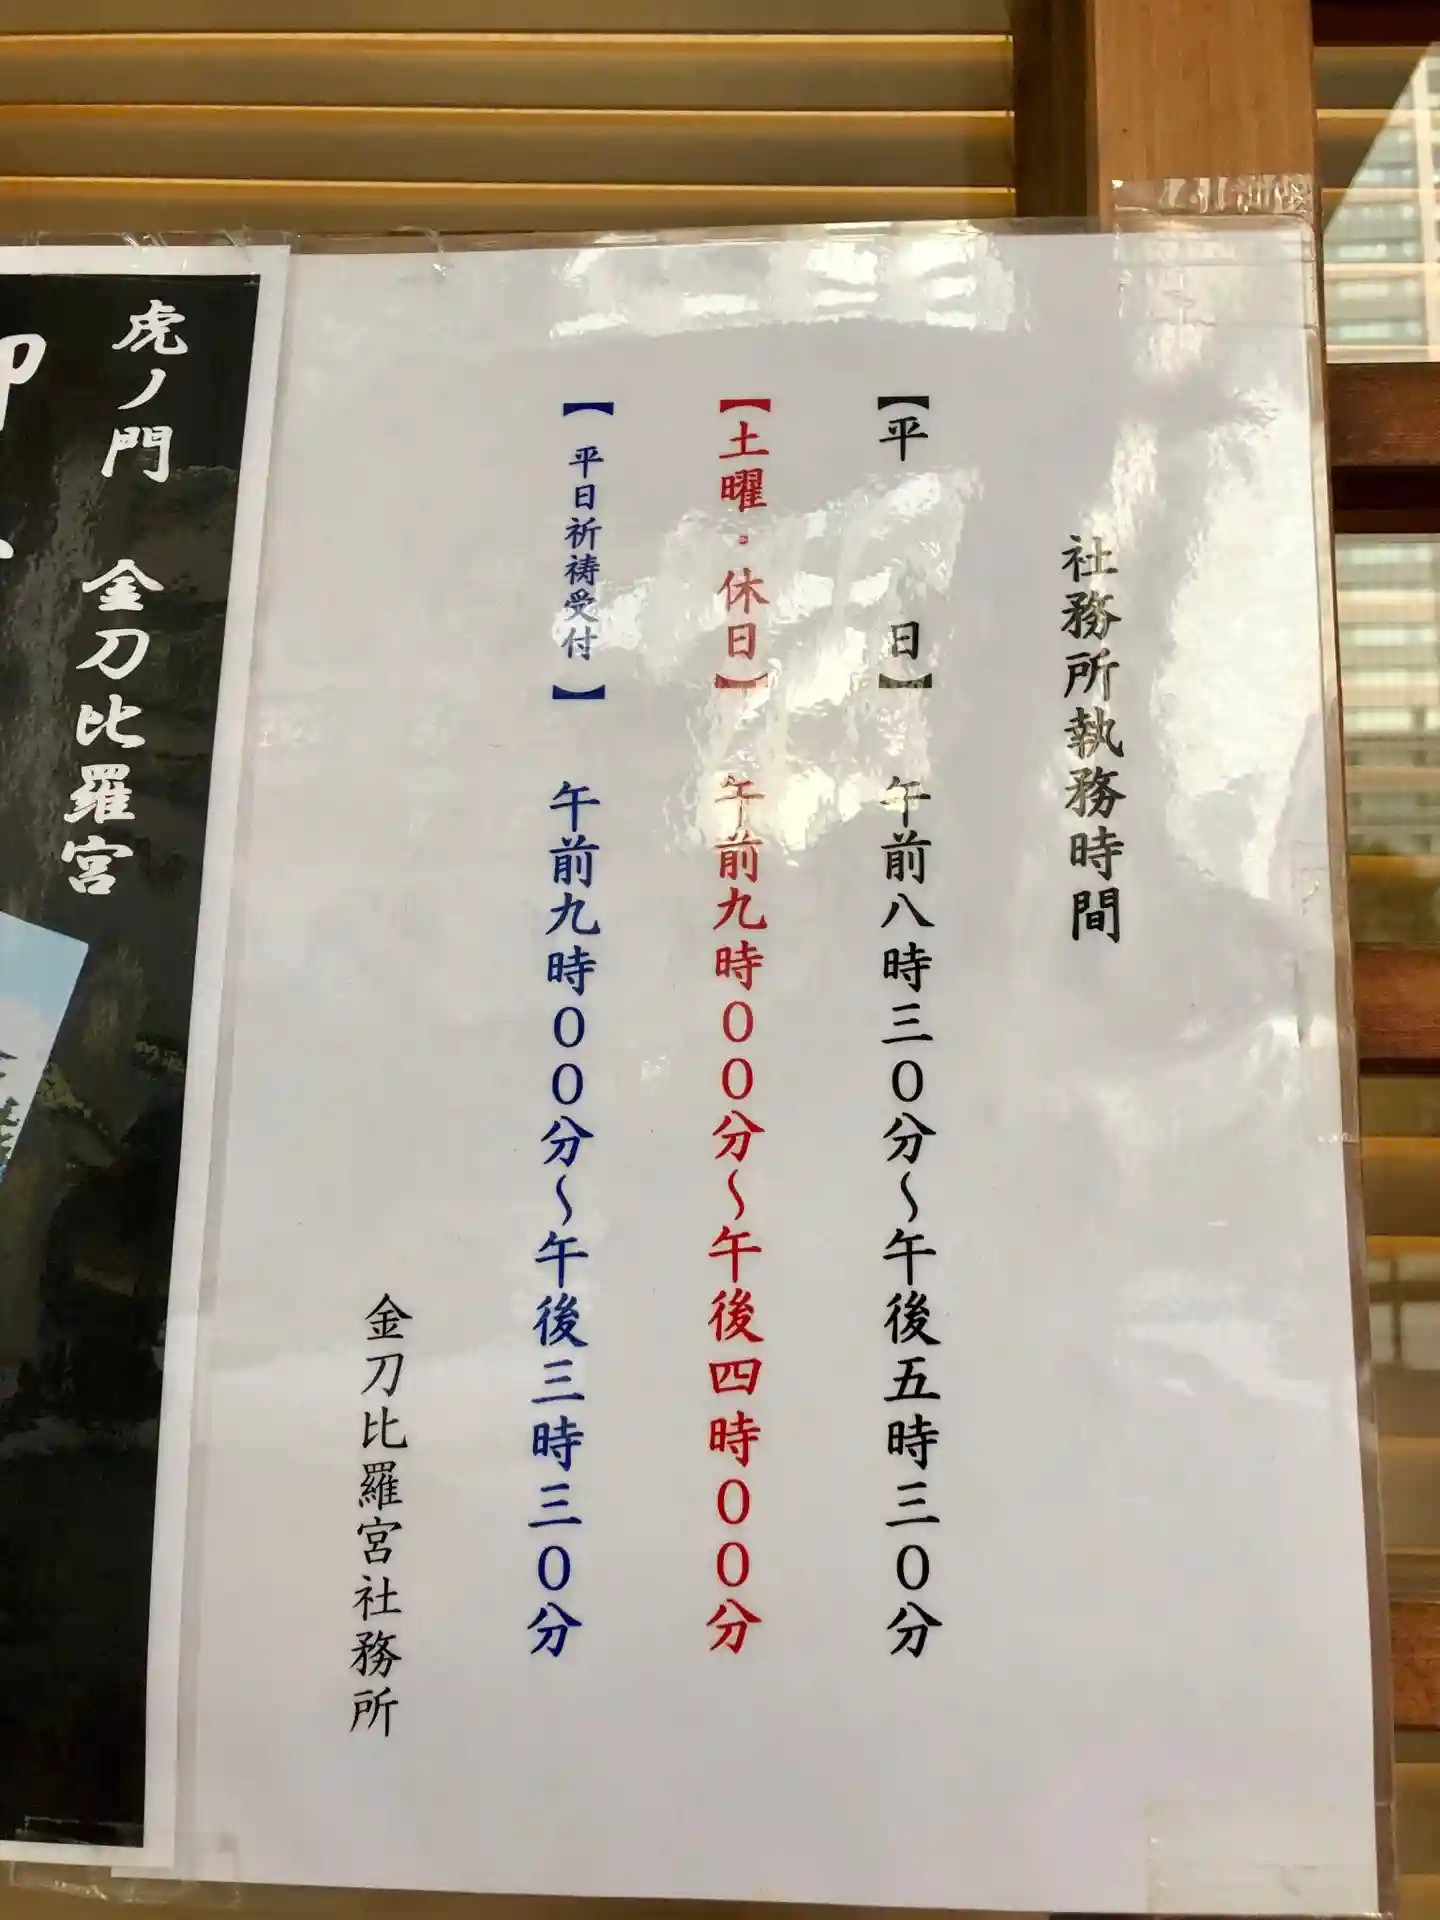 社務所執務時間
【平　日】 午前八時三０分～午後五時三０分
【土曜・休日】 午前九時００分～午後四時００分
【平日祈祷受付】 午前九時００分～午後三時三０分
金刀比羅宮社務所
虎ノ門 金刀比羅宮